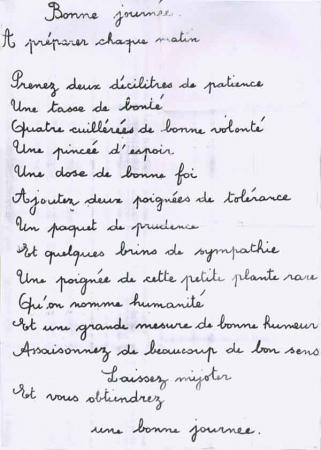 Bonne journée.
A préparer chaque matin
Prenez deux décilitres de patience
Une tasse de bonté
Quatre cuillérées de bonne volonté
Une pincée d'espoir
Une dose de bonne foi
Ajoutez deux poignées de tolérance
Un paquet de prudence
Et quelques brins de sympathie
Une poignée de cette petite plante rare
Qu'on nomme humanité
Et une grande mesure de bonne humeur
Assaisonnez de beaucoup de bon sens
Laissez mijoter
Et vous obtiendrez
une bonne journée.